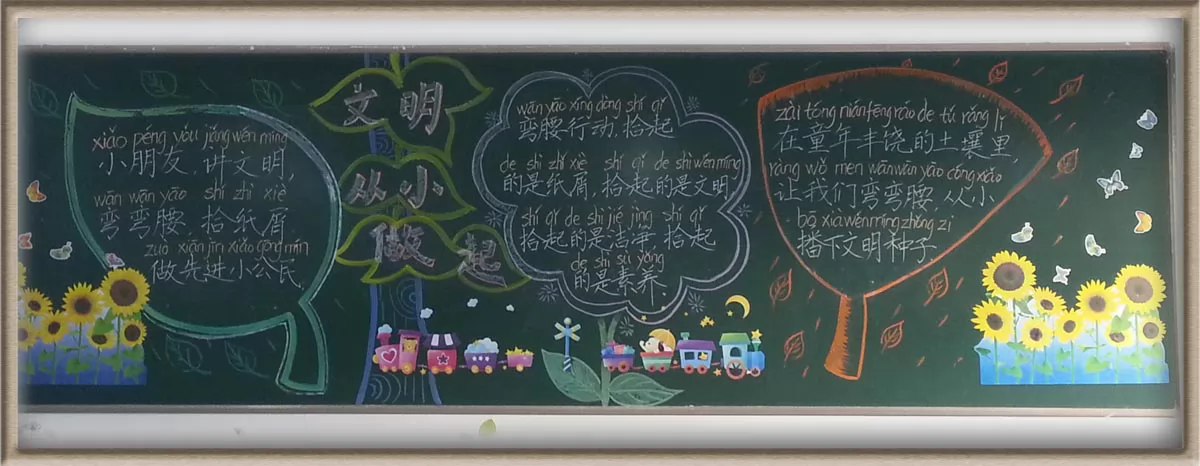 xiǎo péng yóu jiǎng wén míng
小朋友,讲文明,
wān wān yāo shí zhǐ xiè
弯弯腰,拾纸屑
zuò xiān jìn xiǎo gōng mín
做先进小公民
文明
从小
做起
wān yāo xíng dòng shí qǐ
弯腰行动,拾起
de shì zhǐ xiè shí qǐ de shì wén míng
的是纸屑,拾起的是文明,
shí qǐ de shì jié jìng shí qǐ
拾起的是洁净,拾起
de shì sù yǎng
的是素养.
zài tóng nián fēng ráo de tǔ rǎng lǐ
在童年丰饶的土壤里,
ràng wǒ men wān wān yāo cóng xiǎo
让我们弯弯腰,从小
bō xià wén míng zhǒng zi
播下文明种子.